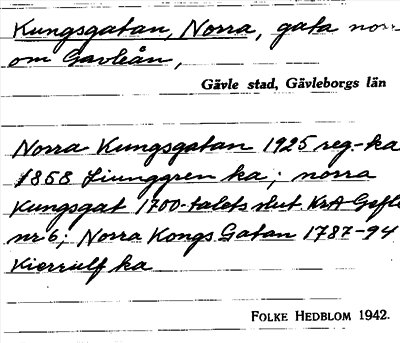 Kungsgatan, Norra, gata norr
om Gavleån,
Gävle stad, Gävleborgs län
Norra Kungsgatan 1925 reg.-ka
1858 Ljunggren ka; norra
Kungsgat 1700-talets slut. KrA Gefle
nr 6; Norra Kongs Gatan 1787-94
Kierrulf ka
FOLKE HEDBLOM 1942.